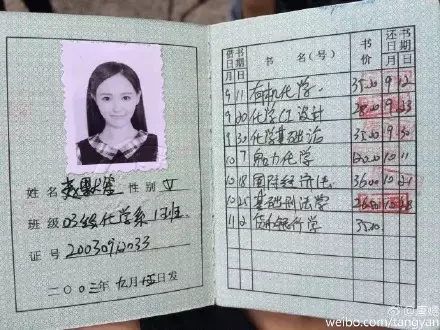 姓名 赵默笙 性别 女
班级 03级化学系1班
证号
二〇〇三年九月十五日发
借书日期 书名(号) 书价 还书日期
月 日 月 日
9 11 有机化学 35.00 9 12
9 20 化学CI设计 9 23
9 30 化学基础论 35.00 9 30
10 7 动力化学 10 11
10 18 国际经济法 36.00 10 21
10 25 基础刑法学
11 2 货币银行学 35.00
@唐嫣
weibo.com/tangyan